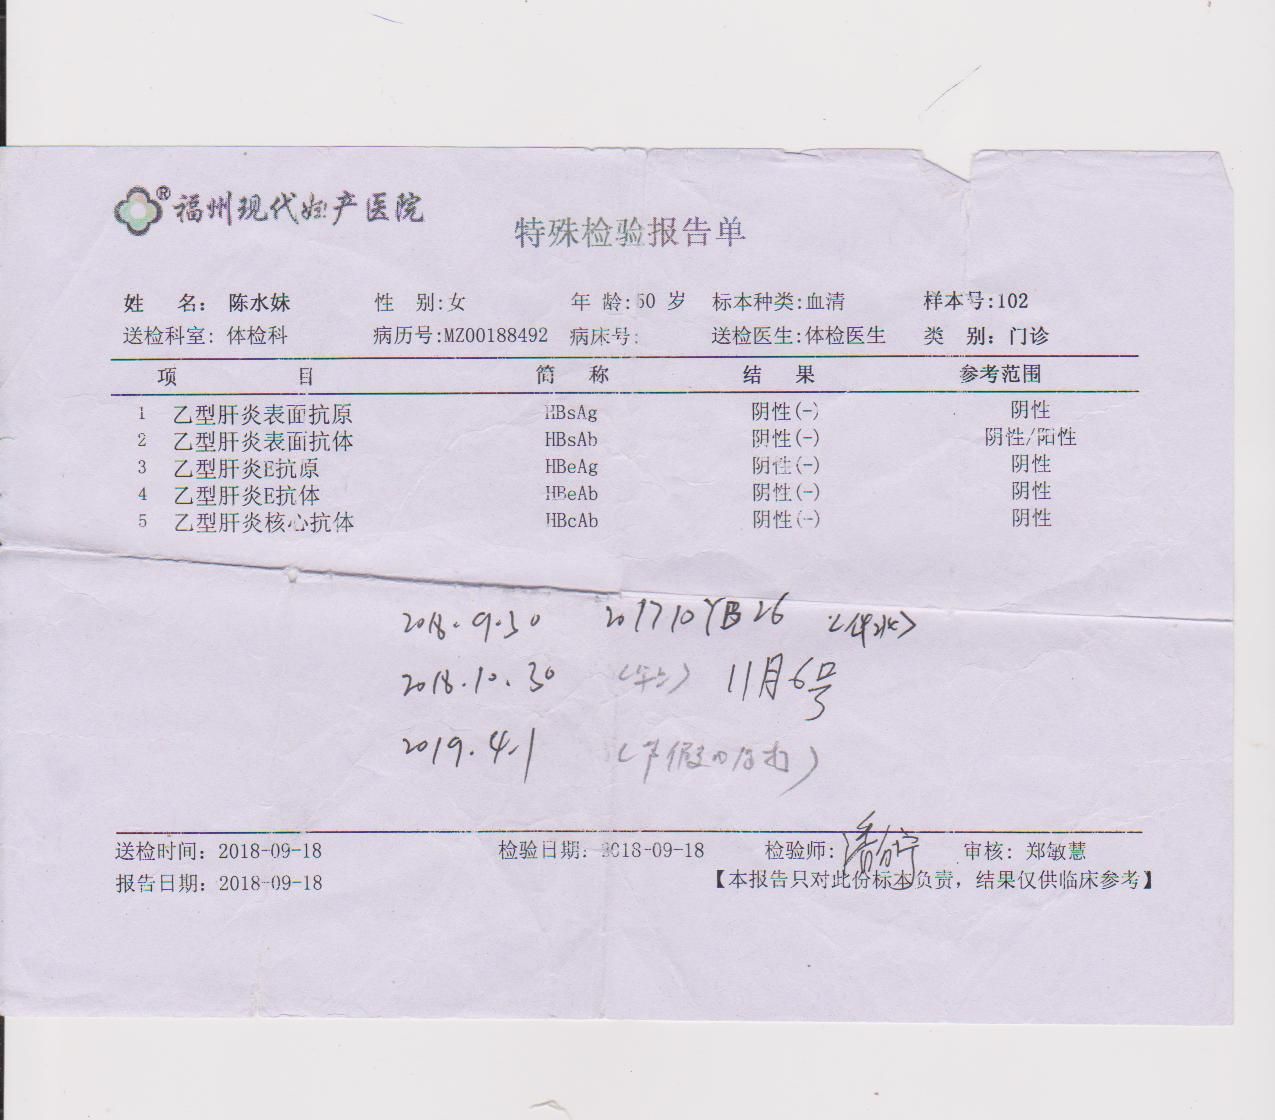 ® 福州现代妇产医院
特殊检验报告单
姓 名: 陈水妹 性 别:女 年 龄:50 岁 标本种类:血清 样本号:102
送检科室: 体检科 病历号:MZ00188492 病床号: 送检医生:体检医生 类 别: 门诊
项 目 简 称 结 果 参考范围
1 乙型肝炎表面抗原 HBsAg 阴性(-) 阴性
2 乙型肝炎表面抗体 HBsAb 阴性(-) 阴性/阳性
3 乙型肝炎E抗原 HBeAg 阴性(-) 阴性
4 乙型肝炎E抗体 HBeAb 阴性(-) 阴性
5 乙型肝炎核心抗体 HBcAb 阴性(-) 阴性
2018.9.30 201710YB26
2018.10.30 11月6号
2019.4.1
送检时间: 2018-09-18 检验日期: 2018-09-18 检验师: 审核: 郑敏慧
报告日期: 2018-09-18 【本报告只对此份标本负责, 结果仅供临床参考】